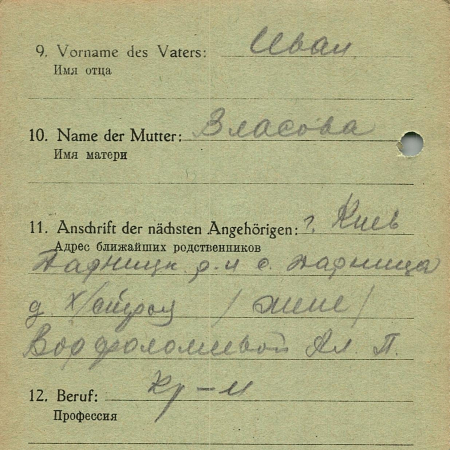 9. Vorname des Vaters: Иван
Имя отца
10. Name der Mutter: Власова
Имя матери
11. Anschrift der nächsten Angehörigen: г. Киев
Адрес ближайших родственников
р-н с. Дарница
д. /жене/
Ворфоломиевой Ал. П.
12. Beruf: кр-н
Профессия